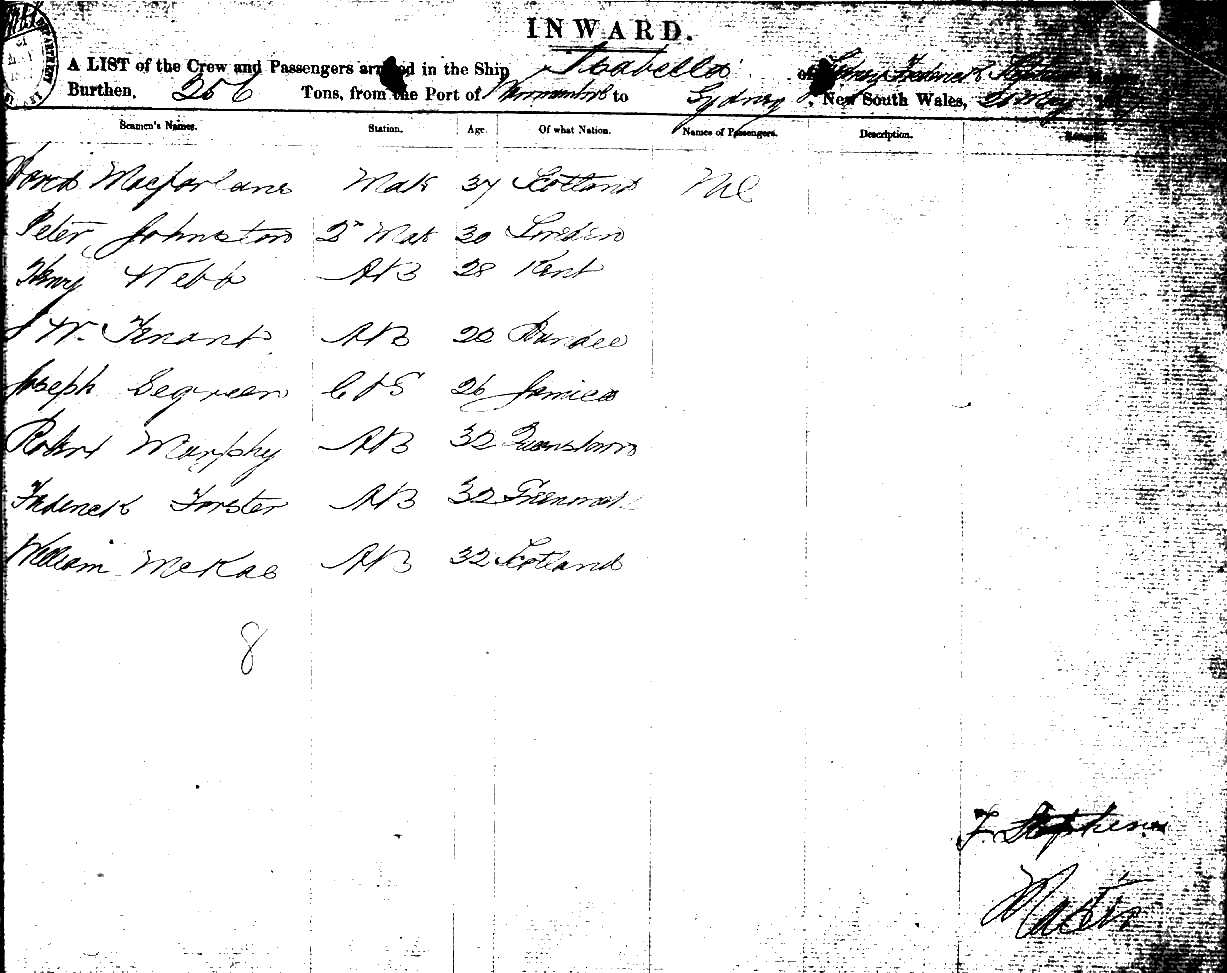 INWARD.
A LIST of the Crew and Passengers arrived in the Ship Isabella of Frederick Stephens
Burthen. 256 Tons, from the Port of to Sydney, New South Wales, May
Seamen's Names. Station. Age. Of what Nation. Names of Passengers. Description. Remarks.
David Macfarlane Mate 37 Scotland Nil
Peter Johnston 2 Mat 30
Henry Webb AB 28 Kent
W. Tenant AB 20 Dundee
Joseph Segreen C & S 26 Jamica
Robert Murphy AB 32
Frederick Forster AB 32
William McKae AB 32 Scotland
8
F. Stephens
Master